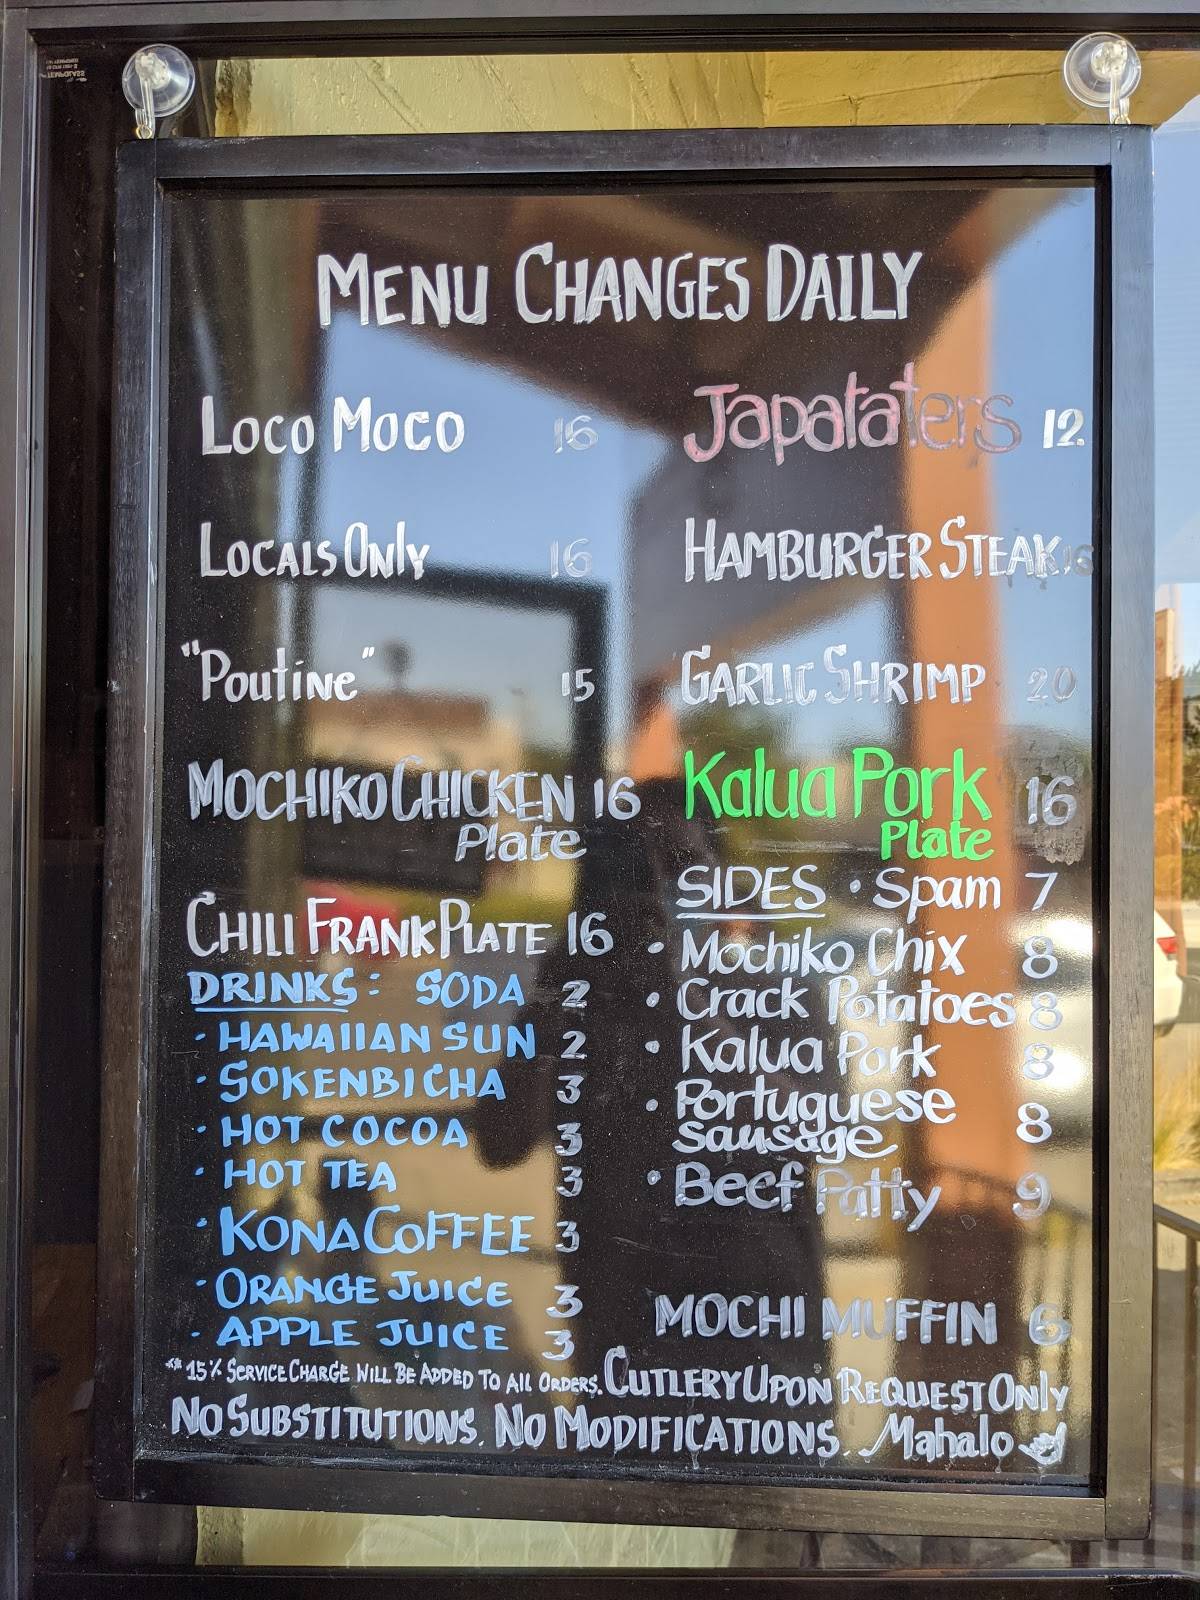 MENU CHANGES DAILY
LOCO MOCO 16
LOCALS ONLY 16
"POUTINE" 15
MOCHIKO CHICKEN 16
Plate
CHILI FRANK PLATE 16
DRINKS: SODA 2
· HAWAIIAN SUN 2
· SOKENBICHA 3
· HOT COCOA 3
· HOT TEA 3
· KONA COFFEE 3
· ORANGE JUICE 3
· APPLE JUICE 3
Japataters 12.
HAMBURGER STEAK 16
GARLIC SHRIMP 20
Kalua Pork 16
Plate
SIDES · Spam 7
· Mochiko Chix 8
· Crack Potatoes 8
· Kalua Pork 8
· Portuguese
Sausage 8
· Beef Patty 9
MOCHI MUFFIN 6
** 15% SERVICE CHARGE WILL BE ADDED TO All ORDERS. CUTLERY UPON REQUEST ONLY
NO SUBSTITUTIONS. NO MODIFICATIONS. Mahalo